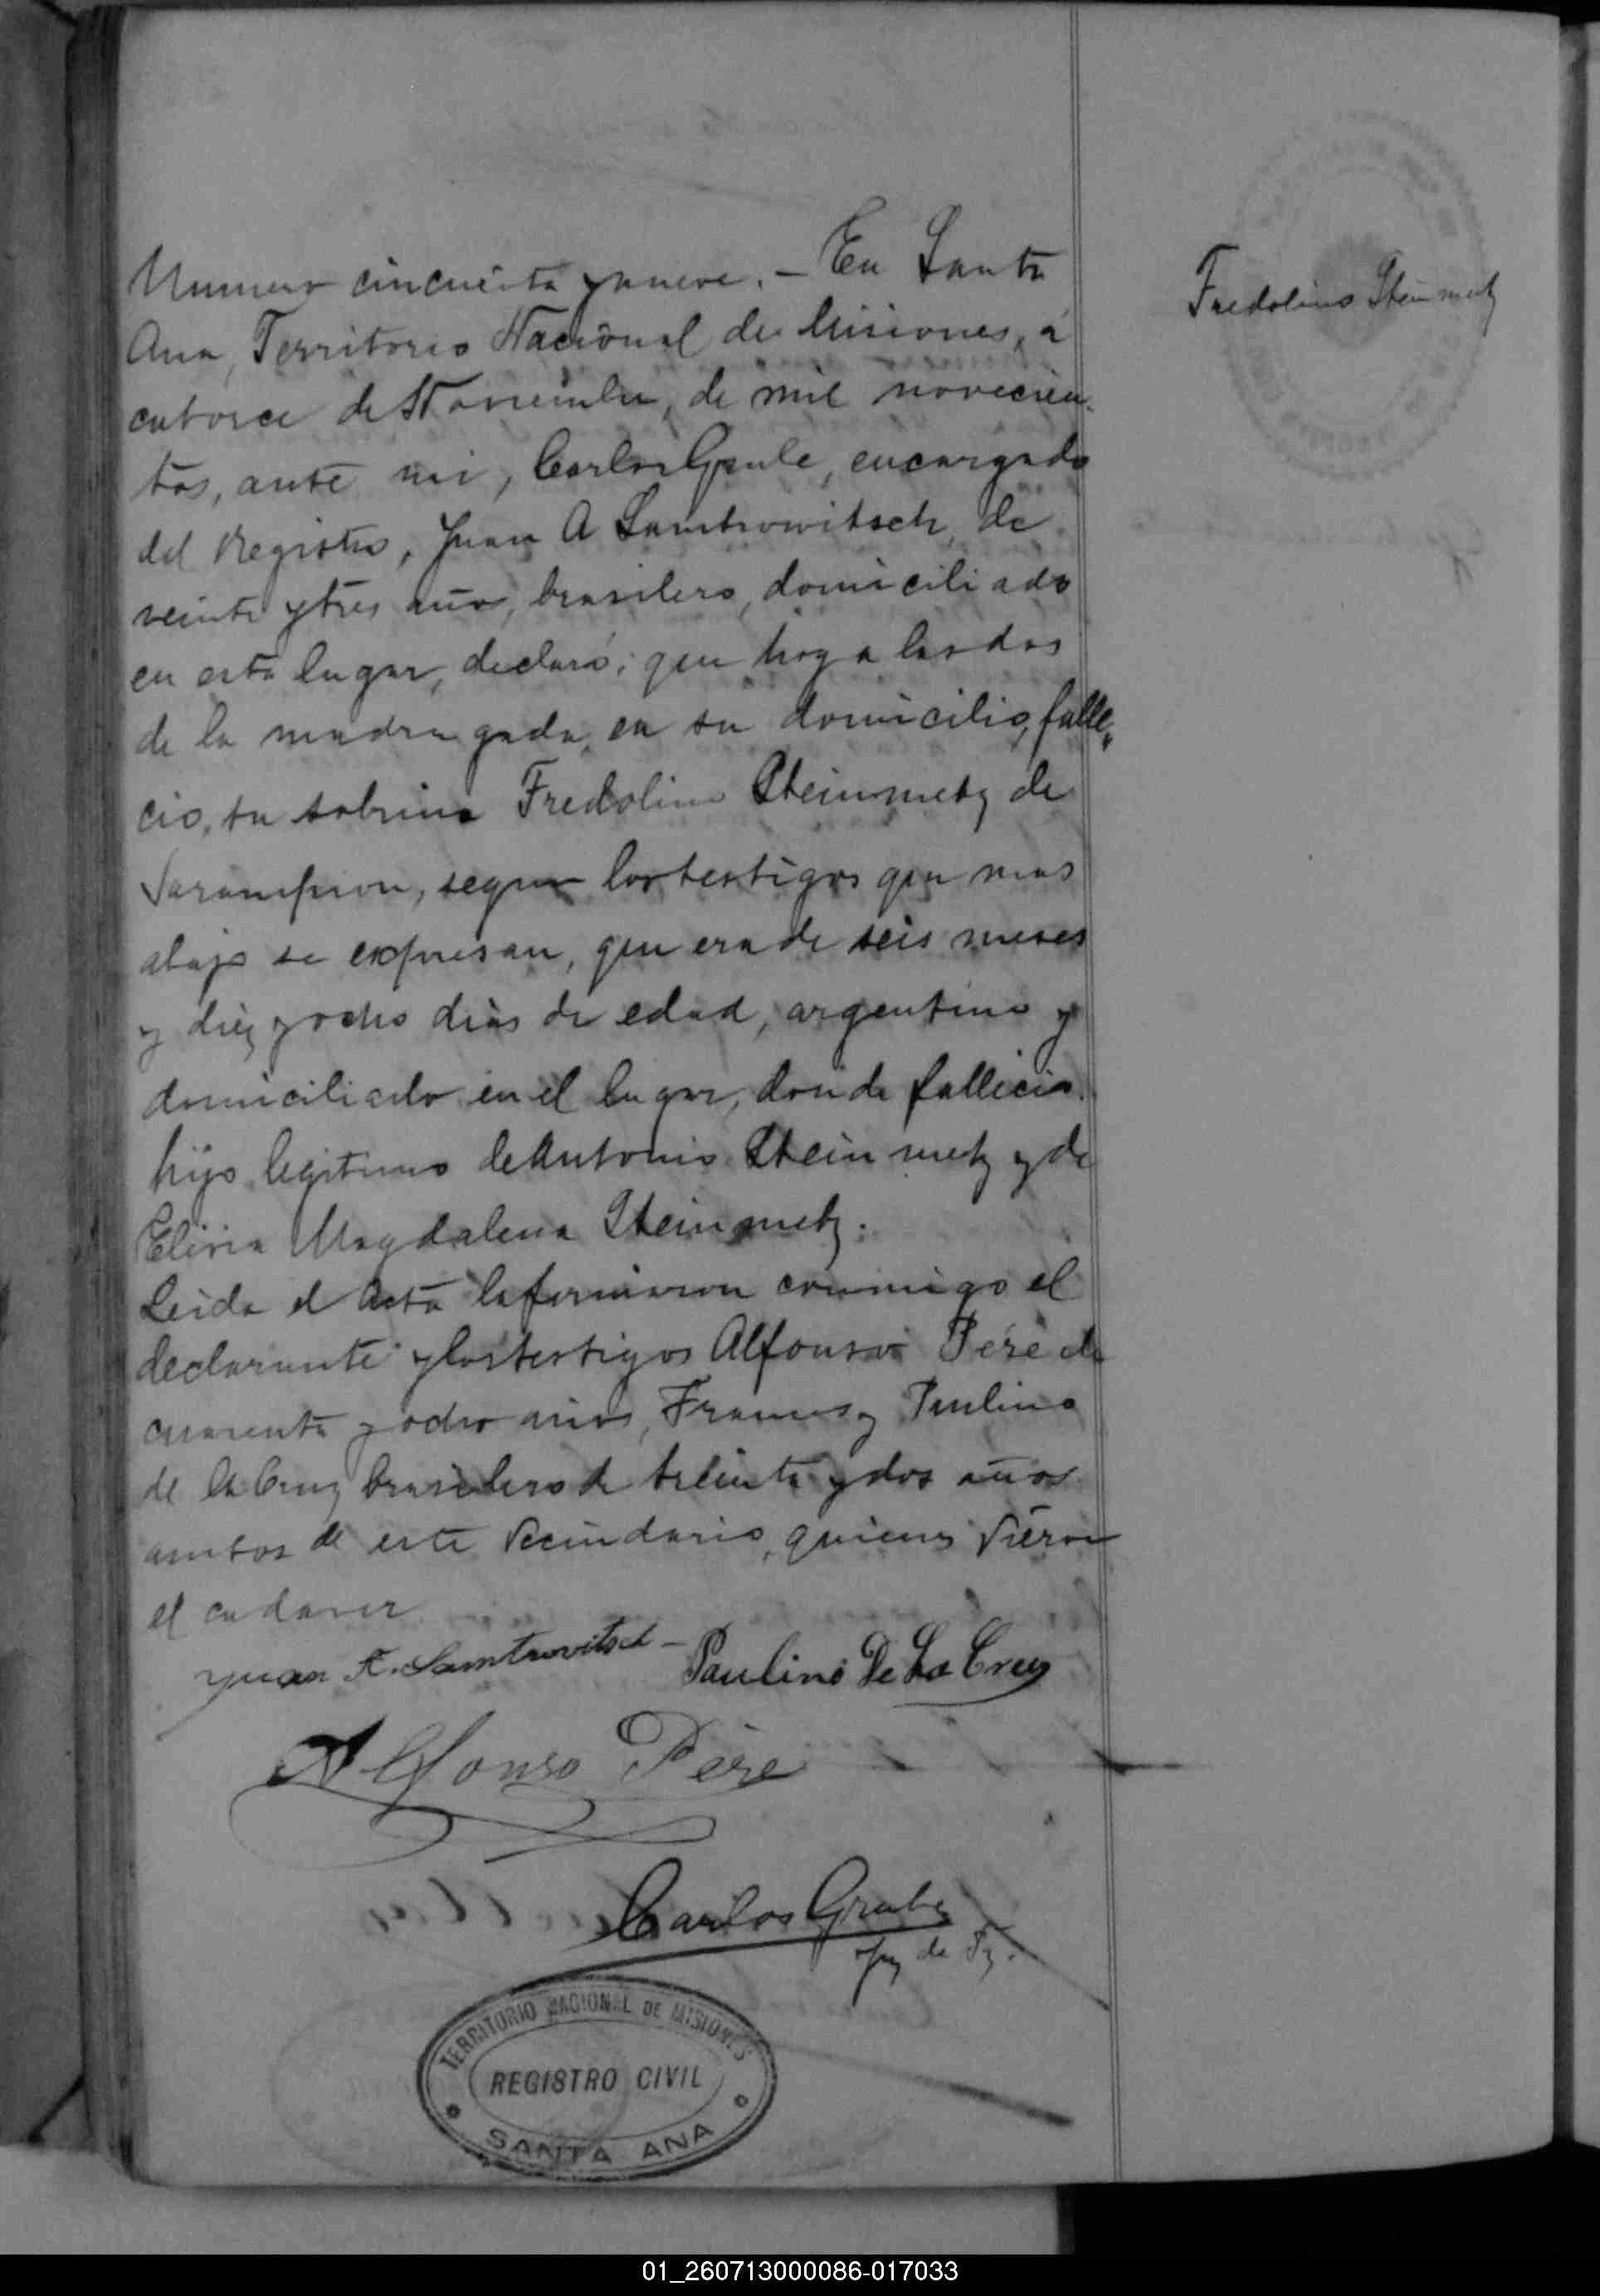 Numero cincuenta y nueve. – En Santa
Ana, Territorio Nacional de Misiones, á
catorce de Noviembre, de mil novecien-
tos, ante mi, Carlos Grube, encargado
del Registro, Juan A Samtrowitsch, de
veinte y tres años, brasilero, domiciliado
en este lugar, declaró; que hoy a las dos
de la madrugada, en su domicilio, falle-
cio, su sobrino Fredolino Steinmetz de
Sarampion, segun los testigos que mas
abajo se expresan, que era de seis meses
y diez y ocho dias de edad, argentino y
domiciliado en el lugar, donde fallecio.
hijo legitimo de Antonio Steinmetz y de
Magdalena Steinmetz.
Leida el Acta la firmaron conmigo el
declarante y los testigos Alfonso Père de
cuarenta y ocho años, Frances y Paulino
de la Cruz brasilero de treinta y dos años
ambos de este Vecindario, quienes Vieron
el cadaver
Fredolino Steinmetz
Juan A. Samtrovitsch – Paulino De La Cruz
Alfonso Père
Carlos Grube
Juez de Pz.
TERRITORIO NACIONAL DE MISIONES
REGISTRO CIVIL
SANTA ANA
01_260713000086-017033